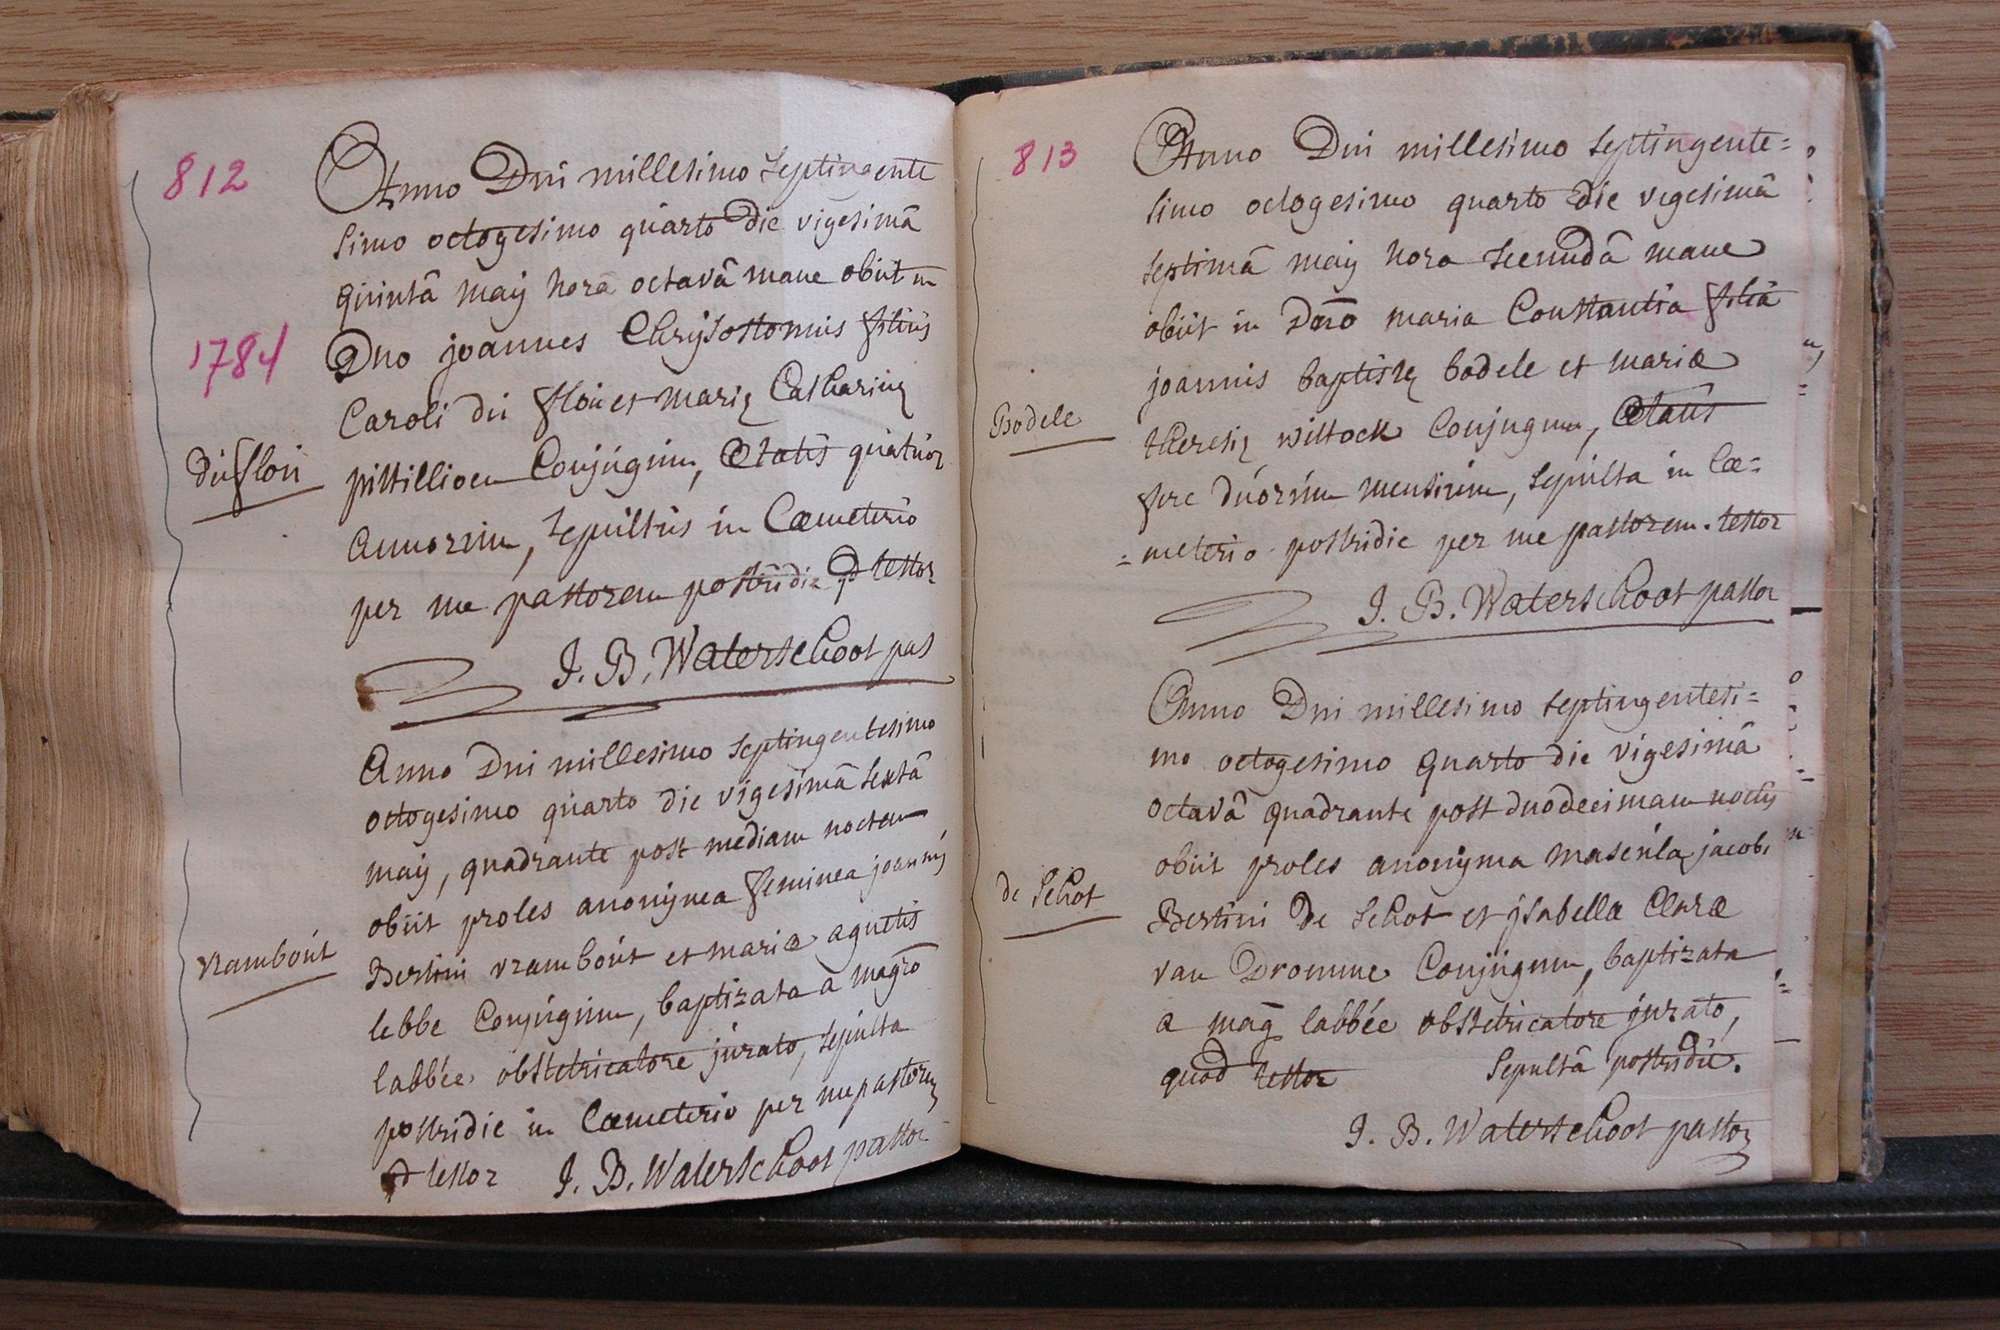 812
1784
Anno Dni millesimo septingente
simo octogesimo quarto die vigesimâ
quintâ maÿ horâ octavâ mane obiit in
Dno joannes Chrÿsostomus filius
Caroli du flou et mariæ Catharinæ
duflou
pittillioen Conjugum, Ætatis quatuor
annorum, sepultus in Cœmeterio
per me pastorem postridie qd testor
J. B. Waterschoot pas
Anno Dni millesimo septingentesimo
octogesimo quarto die vigesimâ sextâ
maÿ, quadrante post mediam noctem
obiit proles anonÿma feminea joannis
Bertini vrambout et mariæ agnetis
vrambout
lebbe Conjugum, baptizata a magro
labbée obstetricatore jurato, sepulta
postridie in Cœmeterio per me pastorem
qd testor J. B. Waterschoot pastor
813
Anno Dni millesimo septingente=
simo octogesimo quarto die vigesimâ
septimâ maÿ hora secundâ mane
obiit in Dno maria Constantia filia
joannis baptistæ bodele et mariæ
Bodele
theresiæ wittock Conjugum, Ætatis
fere duorum mensium, sepulta in Cœ=
=meterio postridie per me pastorem. testor
J. B. Waterschoot pastor
Anno Dni millesimo septingentesi=
mo octogesimo quarto die vigesimâ
octavâ quadrante post duodecimam noctis
obiit proles anonÿma mascula jacobi
de Schot
Bertini De Schot et ÿsabellæ Claræ
van Dromme Conjugum, baptizata
a mag labbée obstetricatore jurato,
quod testor sepultâ postridie.
J. B. Waterschoot pastor